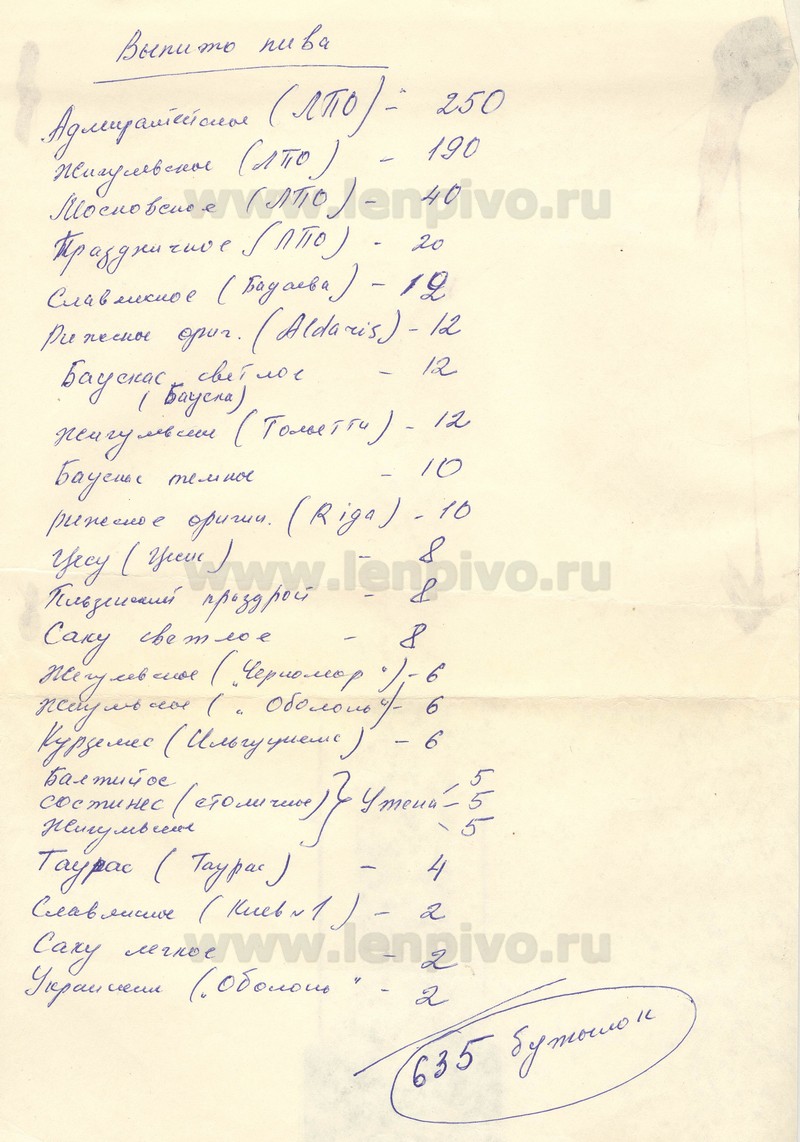 Выпито пива
Адмиралтейское (ЛПО) - 250
Жигулевское (ЛПО) - 190
www.lenpivo.ru
Московское (ЛПО) - 40
Праздничное (ЛПО) - 20
Славянское (Бадаева) - 12
Рижское ориг. (Aldaris) - 12
Баускас светлое - 12
(Бауска)
Жигулевское (Тольетти) - 12
Баускас темное - 10
Рижское оригин. (Riga) - 10
Цесу (Цесис) - 8
www.lenpivo.ru
Пльзенский праздрой - 8
Саку светлое - 8
Жигулевское ("Черномор") - 6
Жигулевское ("Оболонь") - 6
Курземес (Ильгуциемс) - 6
Балтийос - 5
состинес (столичное) } Утена - 5
Жигулевское - 5
Таурас (Таурас) - 4
Славянское (Киев №1) - 2
Саку легкое - 2
www.lenpivo.ru
("Оболонь" - 2
635 бутылок